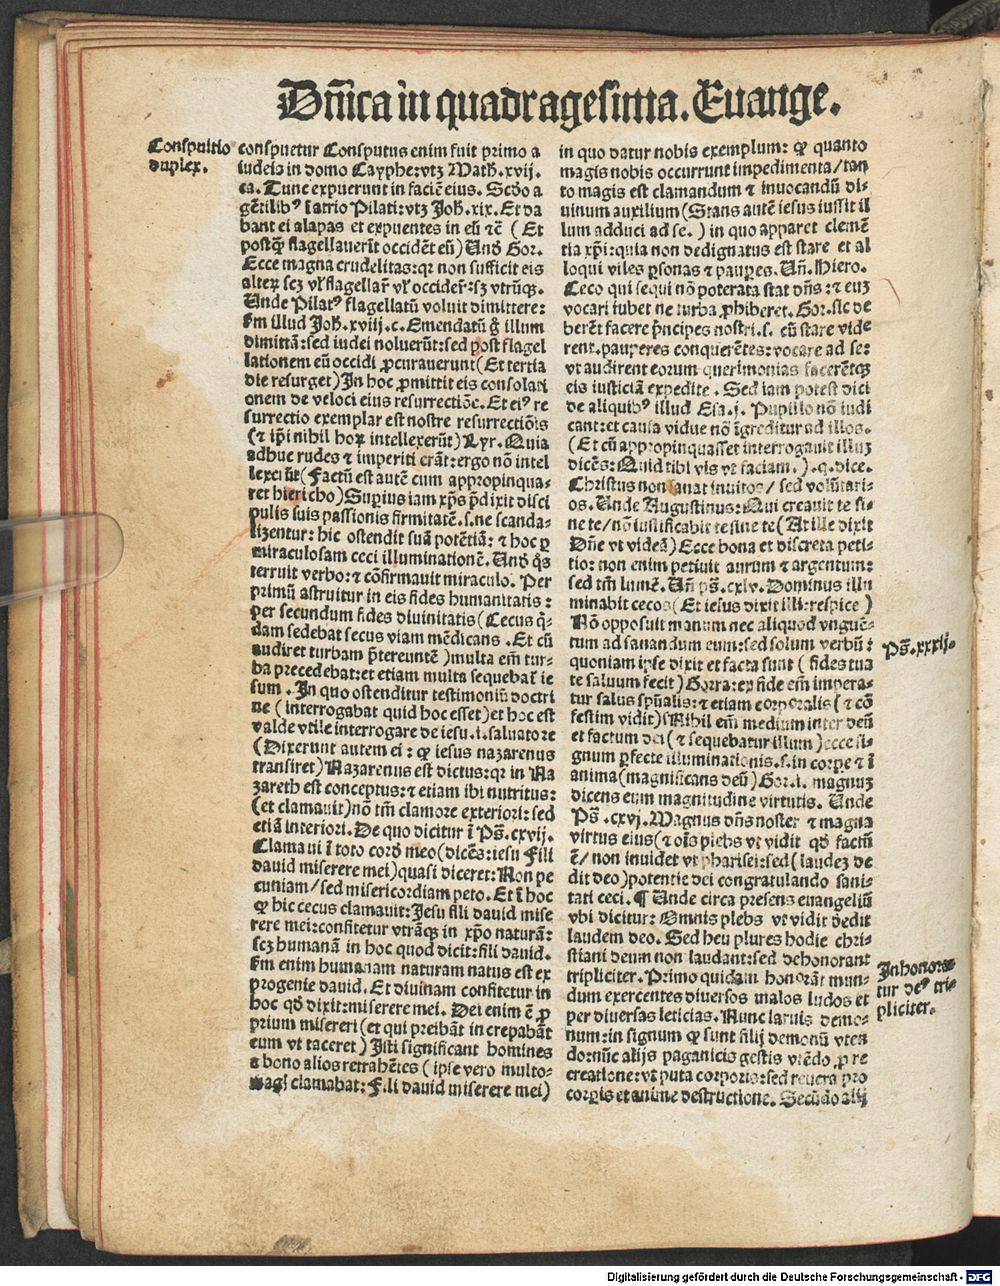 Dñica in quadragesima. Euange.
Conspuitio
duplex.
conspuetur Consputus enim fuit primo a
iudeis in domo Cayphe: vtz Math. xvij.
ca. Tunc expuerunt in faciē eius. Scđo a
gētilibꝰ ī atrio Pilati: vtz Joh. xix. Et da
bant ei alapas et expuentes in eū ⁊c̄ (Et
postꝙ̄ flagellauerīt occidēt eū) Unđ Gor.
Ecce magna crudelitas: qꝛ non sufficit eis
alteꝝ scꝫ vl̓ flagellar̄ vl̓ occider̄: sꝫ vtrūqꝫ.
Unde Pilatꝰ flagellatū voluit dimittere:
fm illud Joh. xviij. c. Emendatū g̊ illum
dimittā: sed iudei noluerūt: sed post flagel
lationem eū occidi ꝓcurauerunt (Et tertia
die resurget) In hoc ꝓmittit eis consolati
onem de veloci eius resurrectiōe. Et eiꝰ re
surrectio exemplar est nostre resurrectiōis
(⁊ ip̄i nihil hoꝝ intellexerūt) Lyr. Quia
adhuc rudes ⁊ imperiti erāt: ergo nō intel
lexerūt (Factū est autē cum appropinqua-
ret hiericho) Supius iam xp̄s p̄dixit disci
pulis suis passionis firmitatē. s. ne scanda-
lizentur: hic ostendit suā potētiā: ⁊ hoc ꝑ
miraculosam ceci illuminationē. Unđ q̊s
terruit verbo: ⁊ cōfirmauit miraculo. Per
primū astruitur in eis fides humanitatis:
per secundum fides diuinitatis (Cecus q̄-
dam sedebat secus viam mēdicans. Et cū
audiret turbam p̄tereuntē) multa em̄ tur-
ba precedebat: et etiam multa sequebat̄ ie
sum. In quo ostenditur testimoniū doctri
ne (interrogabat quid hoc esset) et hoc est
valde vtile interrogare de iesu. i. saluatore
(Dixerunt autem ei: ꝙ iesus nazarenus
transiret) Nazarenus est dictus: qꝛ in Na
zareth est conceptus: ⁊ etiam ibi nutritus:
(et clamauit) nō tm̄ clamore exteriori: sed
etiā interiori. De quo dicitur ī Ps̄. cxvij.
Clamaui ī toto corđ meo (dicēs: iesu Fili
dauid miserere mei) quasi diceret: Non pe
cuniam/ sed misericordiam peto. Et ī hoc
ꝙ hic cecus clamauit: Jesu fili dauid mise
rere mei: confitetur vtrāqꝫ in xp̄o naturā:
scꝫ humanā in hoc quod dicit: fili dauid.
fm enim humanam naturam natus est ex
progenie dauid. Et diuinam confitetur in
hoc qđ dixit: miserere mei. Dei enim ē ꝓ
prium misereri (et qui preibāt in crepabāt
eum vt taceret) Isti significant homines
a bono alios retrahētes (ipse vero multo-
magꝭ clamabat: Fili dauid miserere mei)
in quo datur nobis exemplum: ꝙ quanto
magis nobis occurrunt impedimenta/ tan
to magis est clamandum ⁊ inuocandū di-
uinum auxilium (Stans autē iesus iussit il
lum adduci ad se.) in quo apparet clemē
tia xp̄i: quia non dedignatus est stare et al
loqui viles ꝑsonas ⁊ paupes. Uñ. Hiero.
Ceco qui sequi nō poterat a stat dn̄s: ⁊ euꝫ
vocari iubet ne turba ꝓhiberet. Gor. sic de
berēt facere p̄ncipes nostri. s. eū stare vide
rent. pauperes conquerētes: vocare ad se:
vt audirent eorum querimonias facerētqꝫ
eis iusticiā expedite. Sed iam potest dici
de aliquibꝰ illud Esa. j. Pupillo nō iudi
cant: et causa vidue nō īgreditur ad illos.
(Et cū appropinquasset interrogauit illuꝫ
dicēs: Quid tibi vis vt faciam.). q. dice.
Christus non sanat inuitos/ sed volūtari-
os. Unde Augustinus: Qui creauit te si-
ne te/ nō iustificabit te sine te (At ille dixit
Dn̄e vt videā) Ecce bona et discreta peti-
tio: non enim petiuit aurum ⁊ argentum:
sed tm̄ lumē. Uñ ps̄. cxlv. Dominus illu
minabit cecos (Et iesus dixit illi: respice)
Nō opposuit manum nec aliquod vnguē-
tum ad sanandum eum: sed solum verbū:
quoniam ipse dixit et facta sunt (fides tua
te saluum fecit) Gorra: ex fide em̄ impera-
tur salus sp̄ualis: ⁊ etiam corporalis (⁊ cō
festim vidit) Nihil em̄ medium inter deū
et factum dei (⁊ sequebatur illum) ecce si-
gnum ꝑfecte illuminationis. s. in corpe ⁊ ī
anima (magnificans deū) Gor. i. magnuꝫ
dicens eum magnitudine virtutis. Unde
Ps̄. cxvj. Magnus dn̄s noster ⁊ magna
virtus eius (⁊ oīs plebs vt vidit qđ factū
ē/ non inuidet vt pharisei: sed (laudeꝫ de
dit deo) potentie dei congratulando sani-
tati ceci. ¶ Unde circa presens euangeliū
vbi dicitur: Omnis plebs vt vidit dedit
laudem deo. Sed heu plures hodie chri-
stiani deum non laudant: sed dehonorant
tripliciter. Primo quidam honorāt mun-
dum exercentes diuersos malos ludos et
per diuersas leticias. Nunc laruis demo-
num: in signum ꝙ sunt filij demonū vten
do: nūc alijs paganicis gestis vtēdo, ꝓ re
creatione: vt puta corporis: sed reuera pro
corpis et anime destructione. Secūdo alij
Ps̄. xxxij.
Inhonora-
tur deꝰ tri-
pliciter.
Digitalisierung gefördert durch die Deutsche Forschungsgemeinschaft - DFG